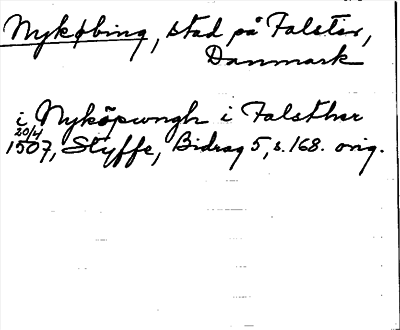 Nykøbing, stad på Falster,
Danmark
i Nyköpungh i Falsther
20/4
1507, Styffe, Bidrag 5, s. 168. orig.